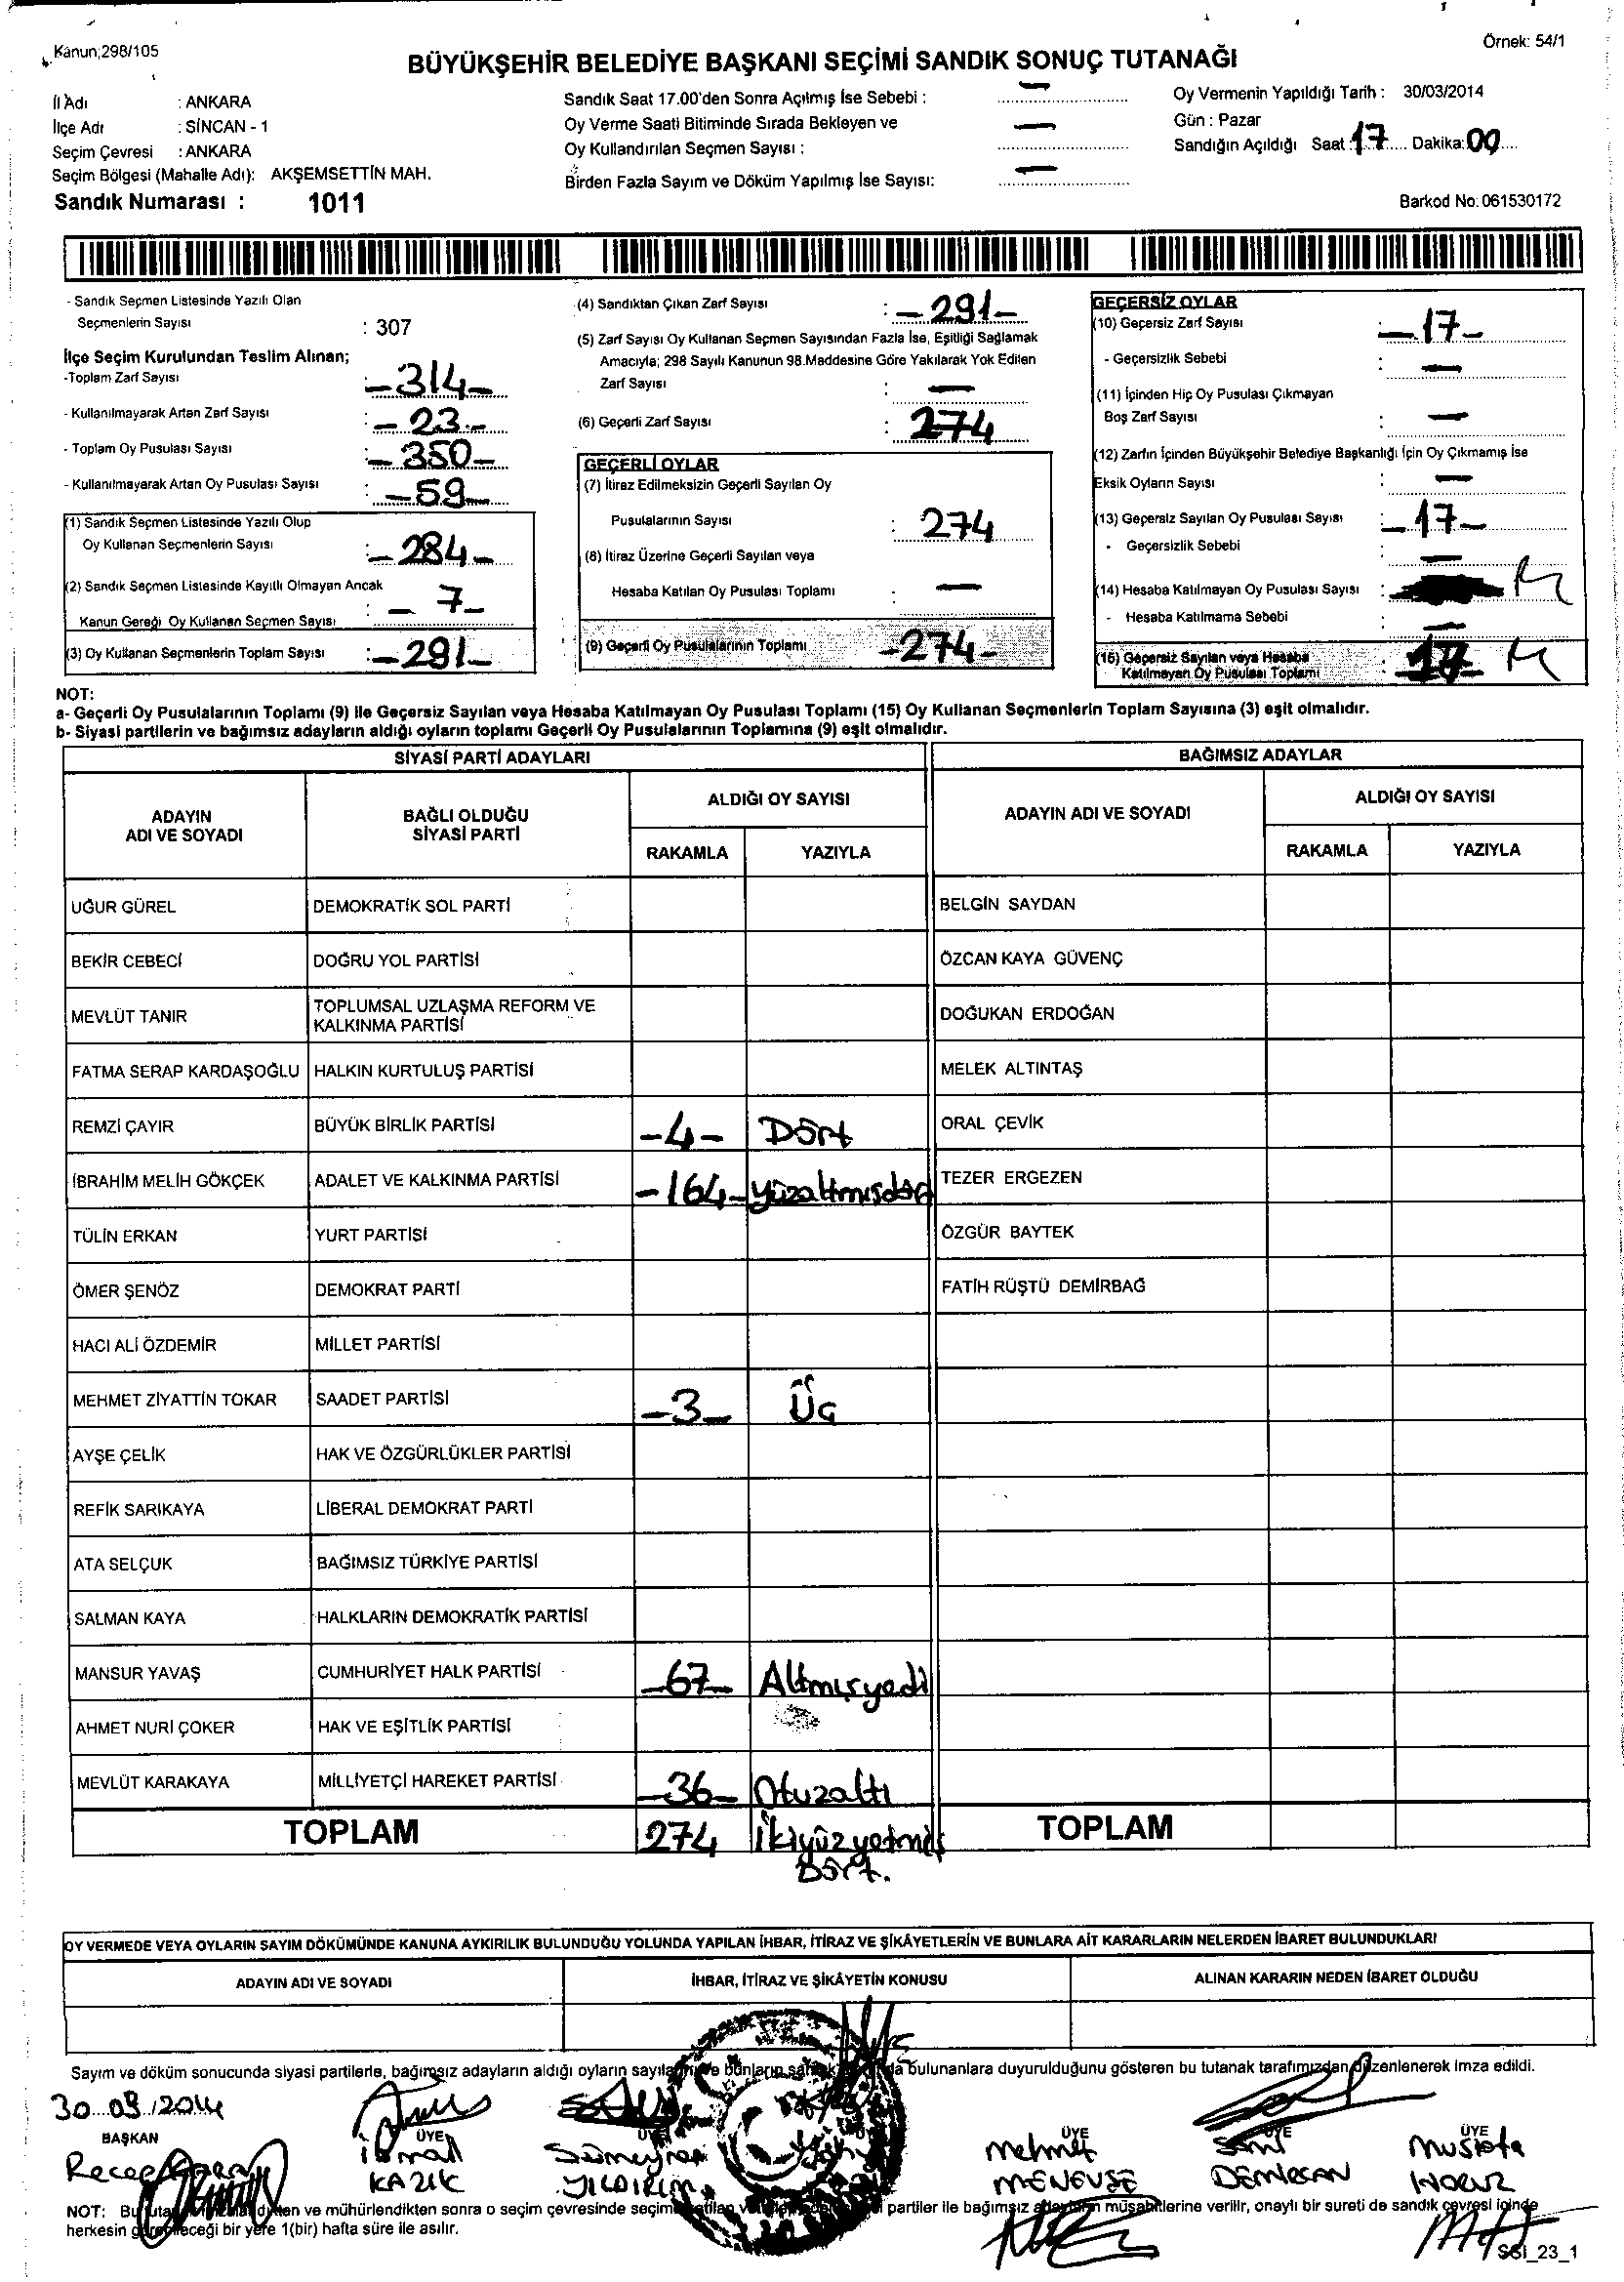 Kanun;298/105
Örnek: 54/1
BÜYÜKŞEHİR BELEDİYE BAŞKANI SEÇİMİ SANDIK SONUÇ TUTANAĞI
İl Adı : ANKARA
İlçe Adı : SİNCAN - 1
Seçim Çevresi : ANKARA
Seçim Bölgesi (Mahalle Adı): AKŞEMSETTİN MAH.
Sandık Numarası : 1011
Sandık Saat 17.00'den Sonra Açılmış İse Sebebi : —
Oy Verme Saati Bitiminde Sırada Bekleyen ve
Oy Kullandırılan Seçmen Sayısı : —
Birden Fazla Sayım ve Döküm Yapılmış İse Sayısı: —
Oy Vermenin Yapıldığı Tarih : 30/03/2014
Gün : Pazar
Sandığın Açıldığı Saat : 17 Dakika: 00
Barkod No: 061530172
- Sandık Seçmen Listesinde Yazılı Olan
Seçmenlerin Sayısı : 307
İlçe Seçim Kurulundan Teslim Alınan;
-Toplam Zarf Sayısı : -314-
- Kullanılmayarak Artan Zarf Sayısı : -23-
- Toplam Oy Pusulası Sayısı : -350-
- Kullanılmayarak Artan Oy Pusulası Sayısı : -59-
(1) Sandık Seçmen Listesinde Yazılı Olup
Oy Kullanan Seçmenlerin Sayısı : -284-
(2) Sandık Seçmen Listesinde Kayıtlı Olmayan Ancak
Kanun Gereği Oy Kullanan Seçmen Sayısı : - 7-
(3) Oy Kullanan Seçmenlerin Toplam Sayısı : -291-
(4) Sandıktan Çıkan Zarf Sayısı : -291-
(5) Zarf Sayısı Oy Kullanan Seçmen Sayısından Fazla İse, Eşitliği Sağlamak
Amacıyla; 298 Sayılı Kanunun 98.Maddesine Göre Yakılarak Yok Edilen
Zarf Sayısı : —
(6) Geçerli Zarf Sayısı : 274
GEÇERLİ OYLAR
(7) İtiraz Edilmeksizin Geçerli Sayılan Oy
Pusulalarının Sayısı : 274
(8) İtiraz Üzerine Geçerli Sayılan veya
Hesaba Katılan Oy Pusulası Toplamı : —
(9) Geçerli Oy Pusulalarının Toplamı -274-
GEÇERSİZ OYLAR
(10) Geçersiz Zarf Sayısı : -17-
- Geçersizlik Sebebi : —
(11) İçinden Hiç Oy Pusulası Çıkmayan
Boş Zarf Sayısı : —
(12) Zarfın İçinden Büyükşehir Belediye Başkanlığı İçin Oy Çıkmamış İse
Eksik Oyların Sayısı : —
(13) Geçersiz Sayılan Oy Pusulası Sayısı : -17-
- Geçersizlik Sebebi : —
(14) Hesaba Katılmayan Oy Pusulası Sayısı :
- Hesaba Katılmama Sebebi : —
(15) Geçersiz Sayılan veya Hesaba
Katılmayan Oy Pusulası Toplamı : -17-
NOT:
a- Geçerli Oy Pusulalarının Toplamı (9) ile Geçersiz Sayılan veya Hesaba Katılmayan Oy Pusulası Toplamı (15) Oy Kullanan Seçmenlerin Toplam Sayısına (3) eşit olmalıdır.
b- Siyasi partilerin ve bağımsız adayların aldığı oyların toplamı Geçerli Oy Pusulalarının Toplamına (9) eşit olmalıdır.
SİYASİ PARTİ ADAYLARI
ADAYIN ADI VE SOYADI
BAĞLI OLDUĞU SİYASİ PARTİ
ALDIĞI OY SAYISI
RAKAMLA YAZIYLA
UĞUR GÜREL DEMOKRATİK SOL PARTİ
BEKİR CEBECİ DOĞRU YOL PARTİSİ
MEVLÜT TANIR TOPLUMSAL UZLAŞMA REFORM VE
KALKINMA PARTİSİ
FATMA SERAP KARDAŞOĞLU HALKIN KURTULUŞ PARTİSİ
REMZİ ÇAYIR BÜYÜK BİRLİK PARTİSİ -4- Dört
İBRAHİM MELİH GÖKÇEK ADALET VE KALKINMA PARTİSİ -164- yüzaltmışdört
TÜLİN ERKAN YURT PARTİSİ
ÖMER ŞENÖZ DEMOKRAT PARTİ
HACI ALİ ÖZDEMİR MİLLET PARTİSİ
MEHMET ZİYATTİN TOKAR SAADET PARTİSİ -3- Üç
AYŞE ÇELİK HAK VE ÖZGÜRLÜKLER PARTİSİ
REFİK SARIKAYA LİBERAL DEMOKRAT PARTİ
ATA SELÇUK BAĞIMSIZ TÜRKİYE PARTİSİ
SALMAN KAYA HALKLARIN DEMOKRATİK PARTİSİ
MANSUR YAVAŞ CUMHURİYET HALK PARTİSİ -67- Altmışyedi
AHMET NURİ ÇOKER HAK VE EŞİTLİK PARTİSİ
MEVLÜT KARAKAYA MİLLİYETÇİ HAREKET PARTİSİ -36- Otuzaltı
TOPLAM 274 İkiyüzyetmiş
Dört.
BAĞIMSIZ ADAYLAR
ADAYIN ADI VE SOYADI
ALDIĞI OY SAYISI
RAKAMLA YAZIYLA
BELGİN SAYDAN
ÖZCAN KAYA GÜVENÇ
DOĞUKAN ERDOĞAN
MELEK ALTINTAŞ
ORAL ÇEVİK
TEZER ERGEZEN
ÖZGÜR BAYTEK
FATİH RÜŞTÜ DEMİRBAĞ
TOPLAM
OY VERMEDE VEYA OYLARIN SAYIM DÖKÜMÜNDE KANUNA AYKIRILIK BULUNDUĞU YOLUNDA YAPILAN İHBAR, İTİRAZ VE ŞİKÂYETLERİN VE BUNLARA AİT KARARLARIN NELERDEN İBARET BULUNDUKLARI
ADAYIN ADI VE SOYADI
İHBAR, İTİRAZ VE ŞİKÂYETİN KONUSU
ALINAN KARARIN NEDEN İBARET OLDUĞU
Sayım ve döküm sonucunda siyasi partilerle, bağımsız adayların aldığı oyların bulunanlara duyurulduğunu gösteren bu tutanak tarafımızdan düzenlenerek imza edildi.
30.03.2014
BAŞKAN ÜYE ÜYE ÜYE ÜYE
Recep
İsmail KAZIK
Sümeyra YILDIRIM
Mehmet MENEVŞE
Sami DEMİRCAN
Mustafa
NOT: ve mühürlendikten sonra o seçim çevresinde partiler ile bağımsız müşahitlerine verilir, onaylı bir sureti de sandık çevresi içinde
herkesin göreceği bir yere 1(bir) hafta süre ile asılır.
SSI_23_1